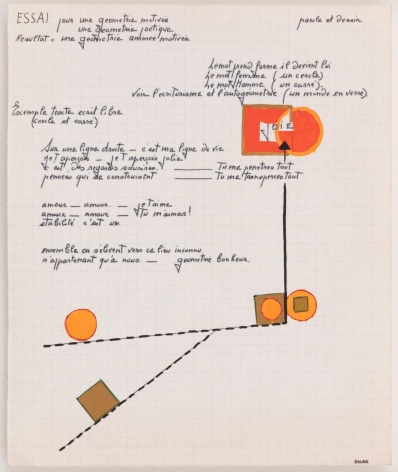 ESSAI pour une geometrie motivee
parole et dessin
une geometrie poetique
Resultat = une geometrie animee motivée
Le mot prend forme il devient lui
Le mot femme (un cercle)
Le mot Homme (un carré)
Voir l'ecriturisme et l'autogeometrie (un monde en verre).
Exemple texte ecrit libre
(cercle et carré)
JOIE
Sur une ligne droite — c'est ma ligne de vie
je t'aperçois jolie
c'est des regards
pensees qui se construisent
Tu me penetres tout
Tu me transperces tout
amour — amour — je t'aime
amour — amour — Tu m'aimes!
stabilité c'est un.
ensemble on s'elevent vers ce lieu inconnu
n'appartenant qu'a nous — geometrie bonheur.